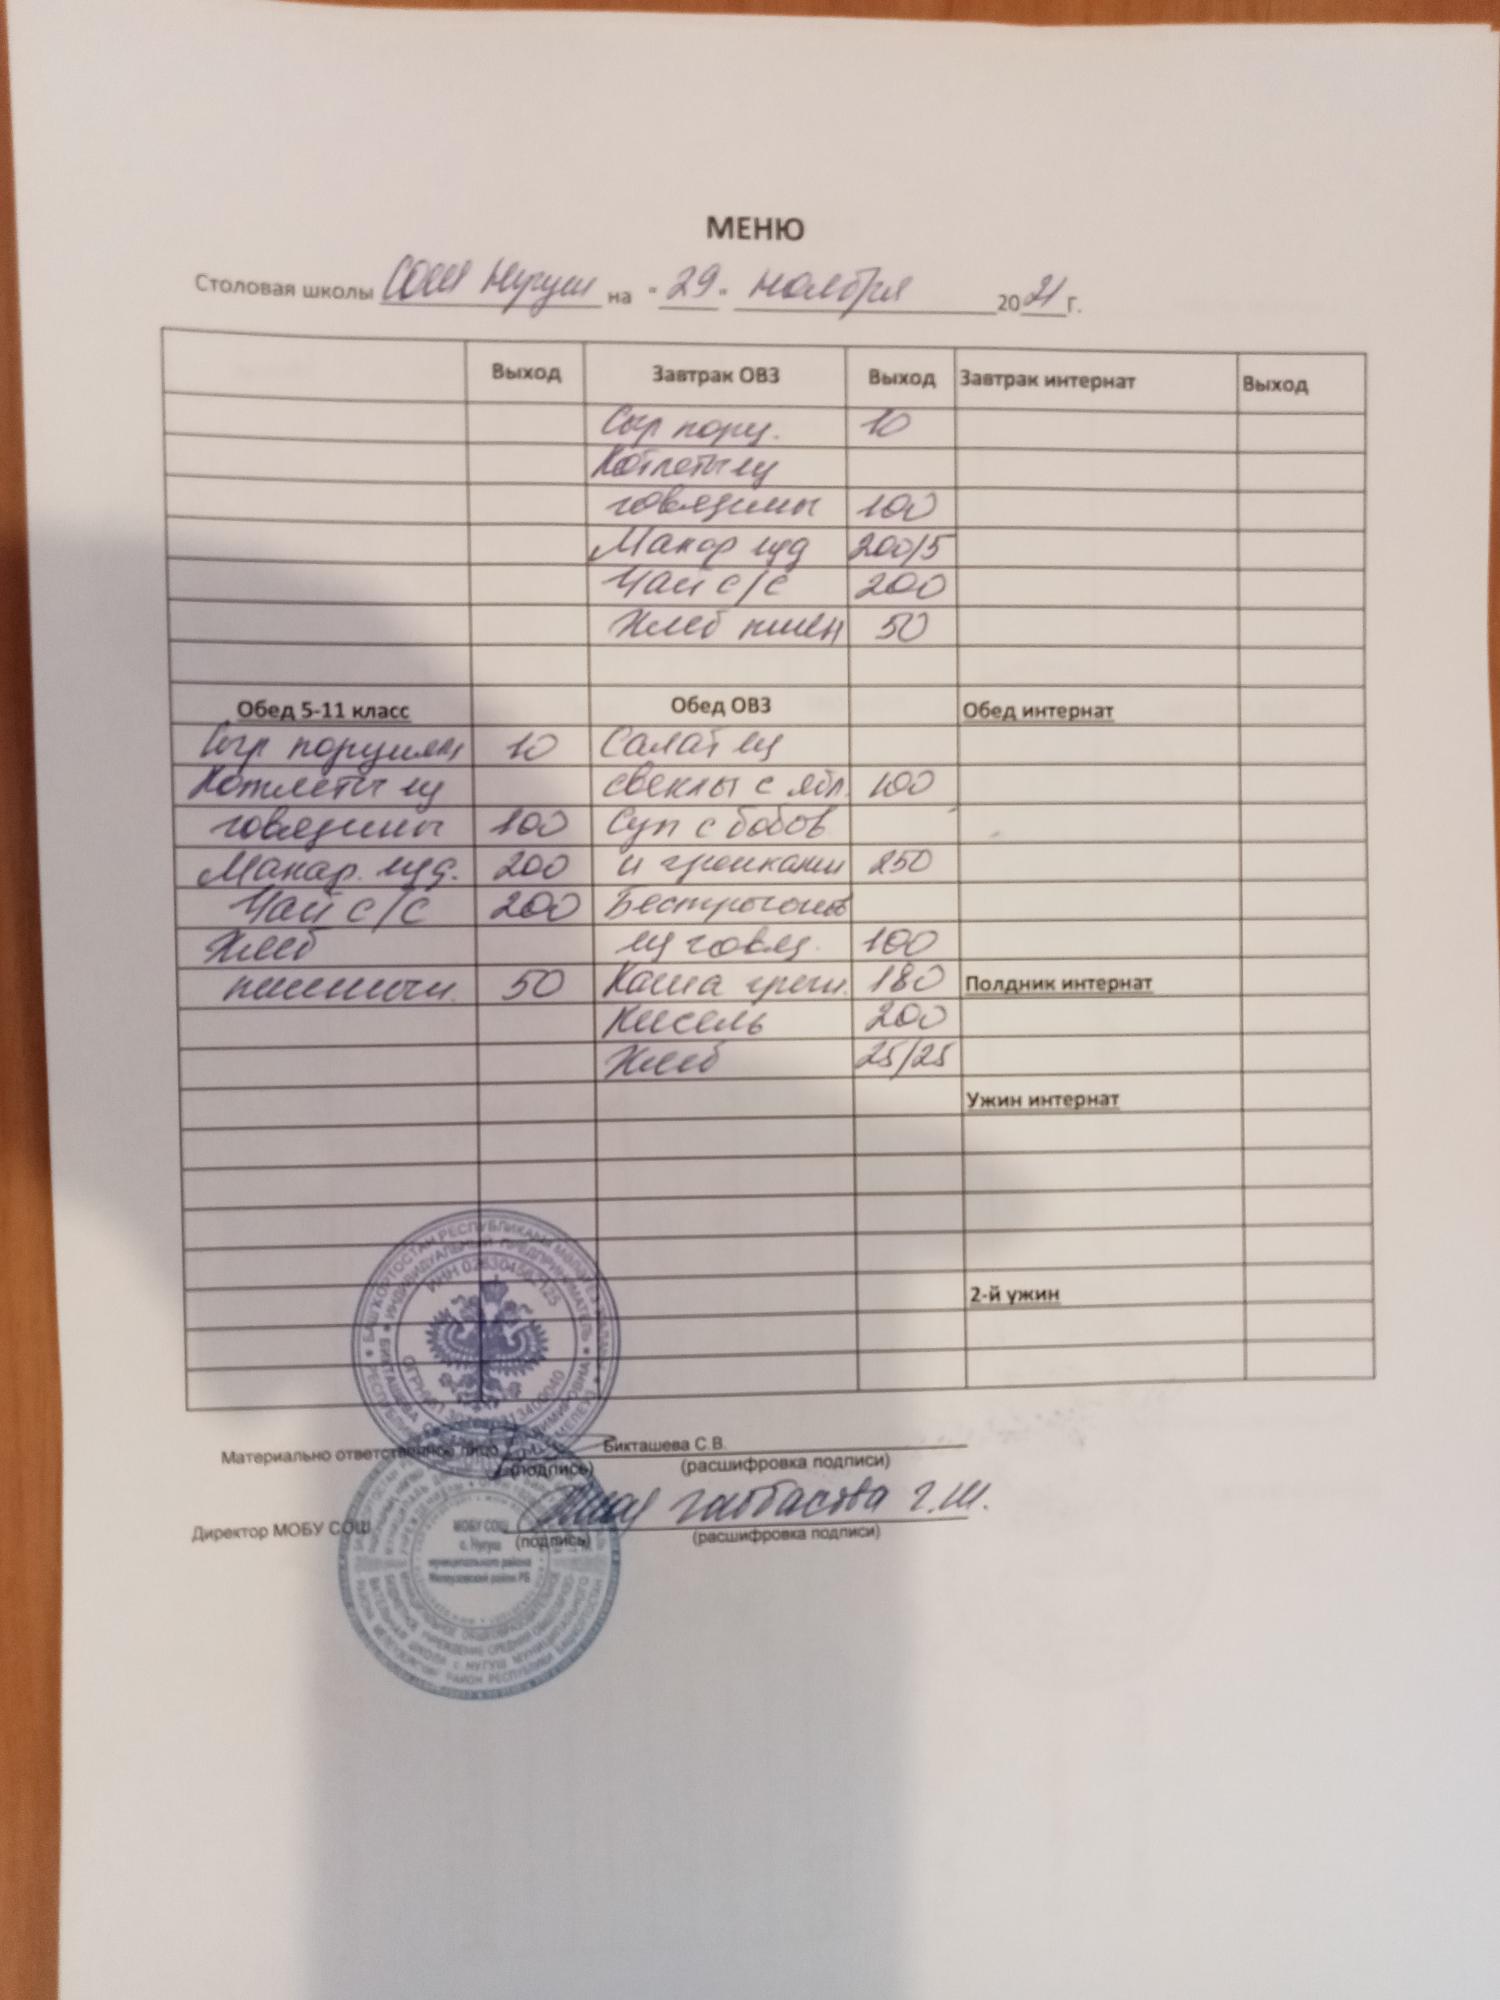 МЕНЮ
Столовая школы СОШ Нугуш на "29" ноября 2021 г.
Выход Завтрак ОВЗ Выход Завтрак интернат Выход
Сыр порц. 10
Котлеты из
говядины 100
Макар изд 200/5
Чай с/с 200
Хлеб пшен 50
Обед 5-11 класс Обед ОВЗ Обед интернат
Сыр порцион 10 Салат из
Котлеты из свеклы с ябл. 100
говядины 100 Суп с бобов
Макар. изд. 200 и гренками 250
Чай с/с 200 Бестрогонов
Хлеб из говяд. 100
пшеничн. 50 Каша греч. 180 Полдник интернат
Кисель 200
Хлеб 25/25
Ужин интернат
2-й ужин
ИНДИВИДУАЛЬНЫЙ ПРЕДПРИНИМАТЕЛЬ
Материально ответственное лицо Бикташева С.В.
(подпись) (расшифровка подписи)
Директор МОБУ СОШ Г.Ш.
(подпись) (расшифровка подписи)
МОБУ СОШ
с. Нугуш
муниципального района
Мелеузовский район РБ